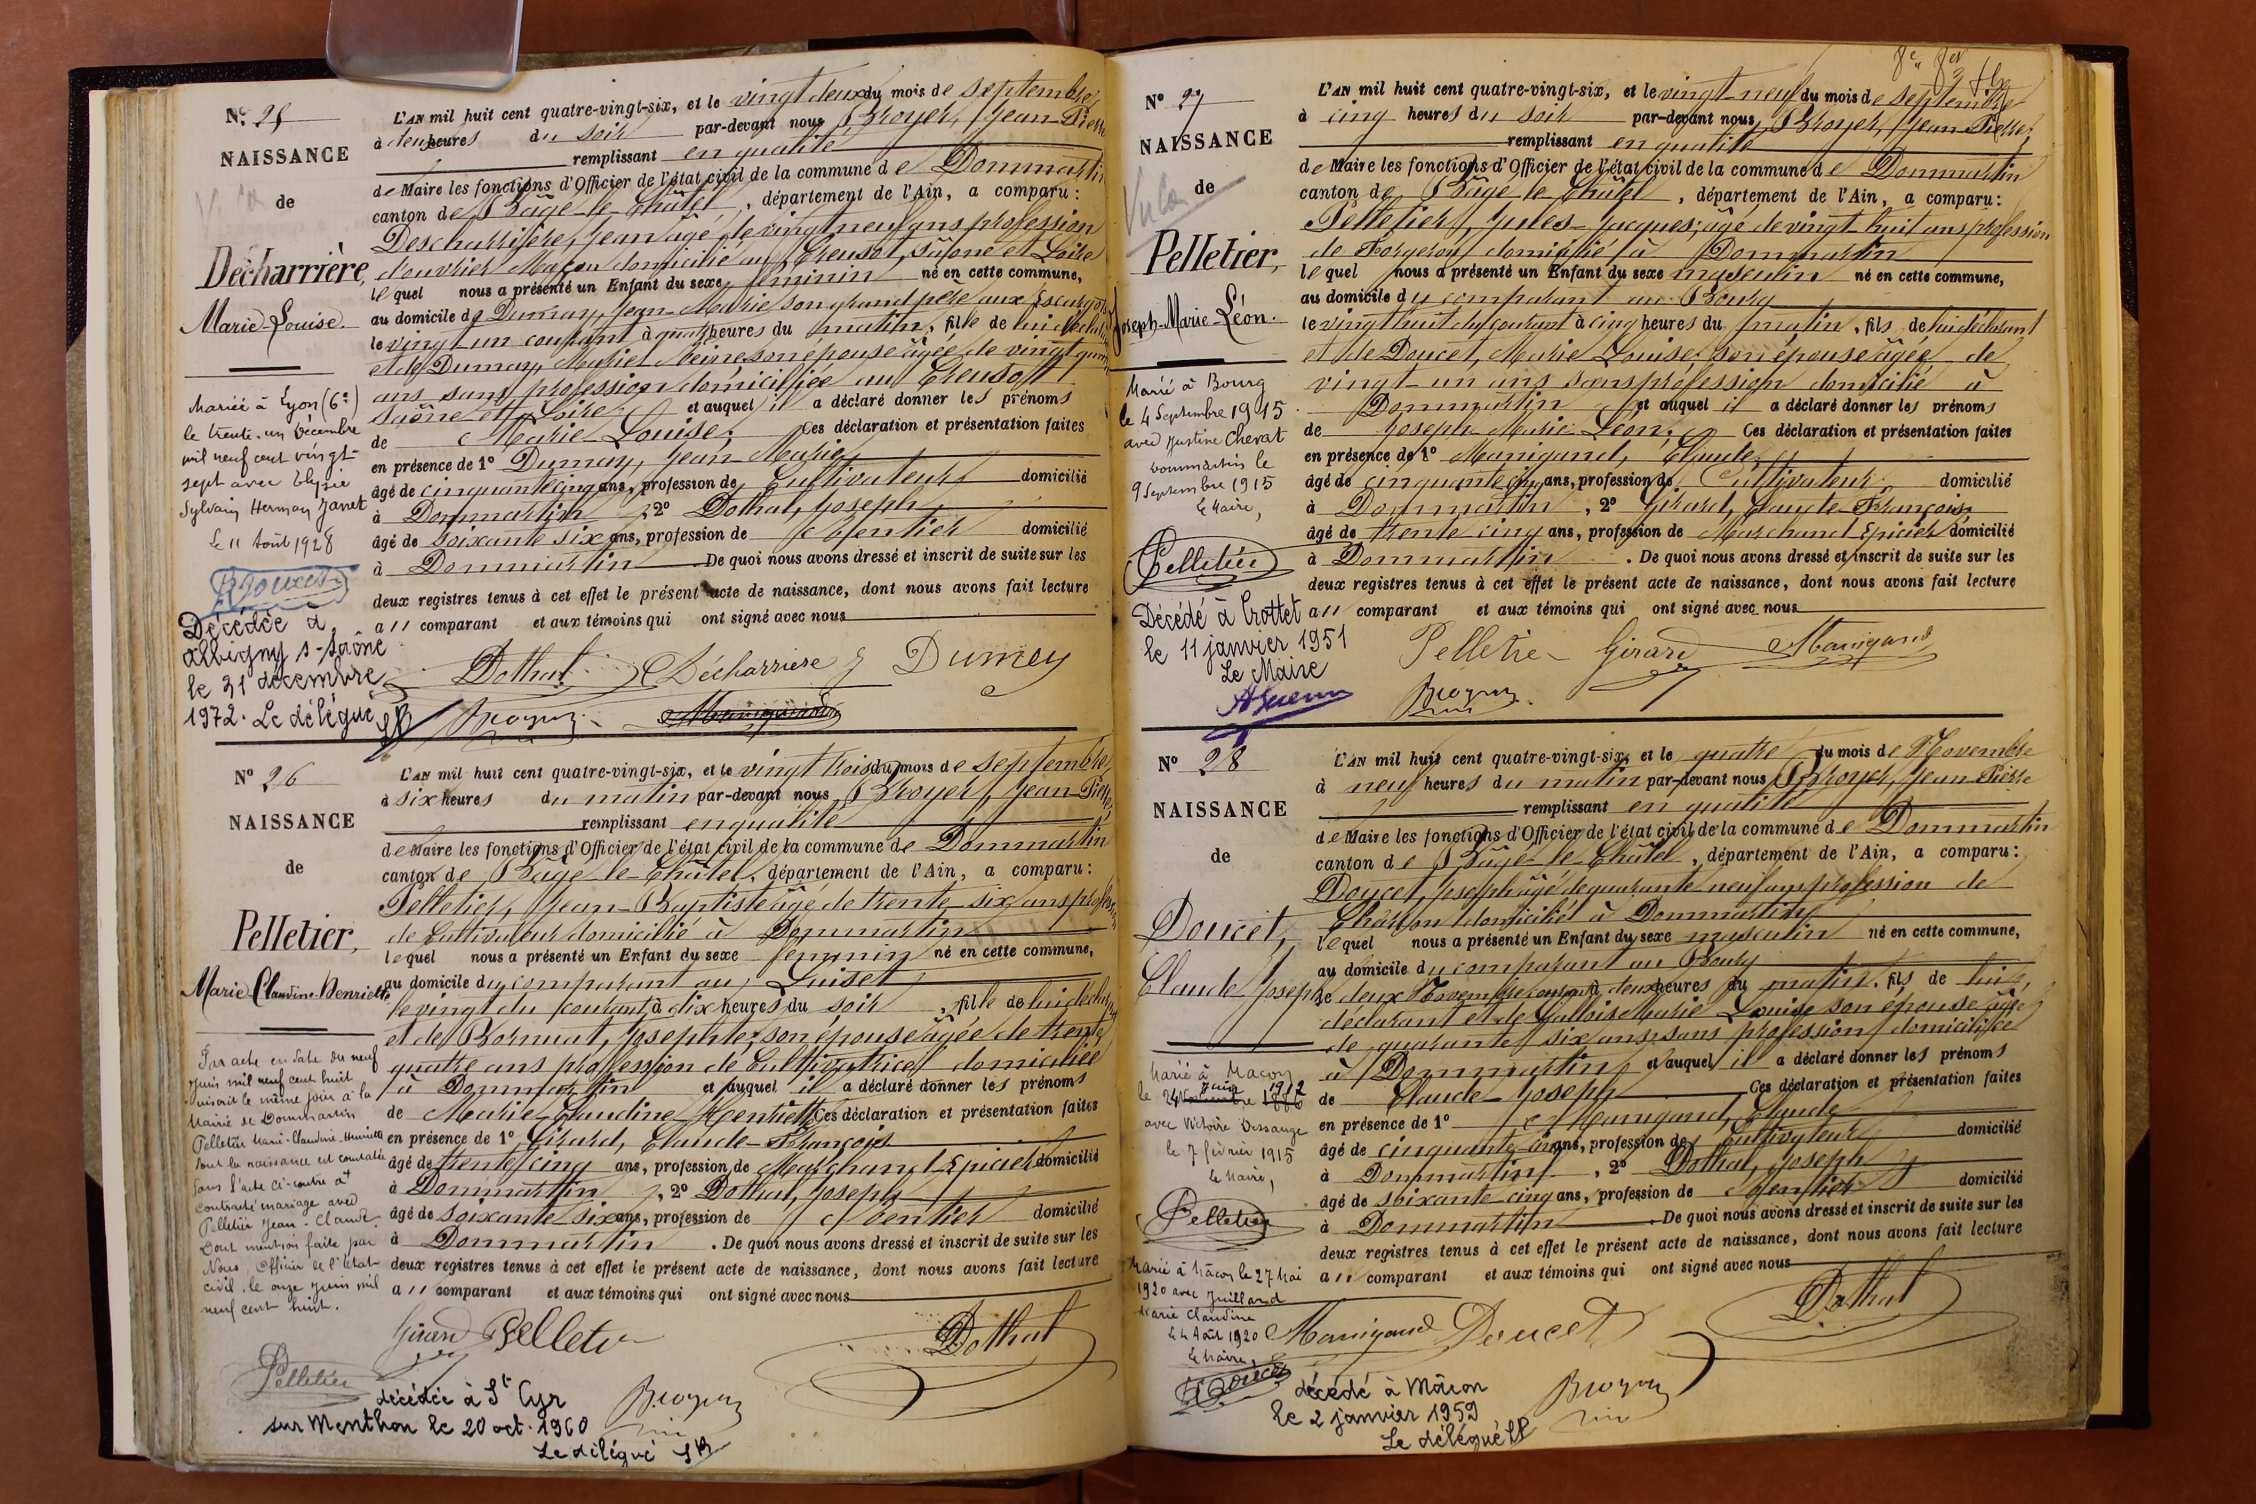 Nº 25
NAISSANCE
de
Décharrière,
Marie-Louise.
Mariée à Lyon (6e)
le trente-un Décembre
mil neuf cent vingt-
sept avec Elysée
Sylvain Herman Janet
Le 11 Août 1928
Décédée à
Albigny s-Saône
le 31 décembre
1972. Le délégué
L'AN mil huit cent quatre-vingt-six, et le vingt deux du mois de septembre
à deux heures du soir par-devant nous Broyer, Jean-Pierre
remplissant en qualité
de Maire les fonctions d'Officier de l'état civil de la commune de Dommartin
canton de Bâgé-le-Châtel, département de l'Ain, a comparu :
Descharrière, Jean âgé de vingt neuf ans profession
d'ouvrier Maçon domicilié au Creusot, Saône et Loire
lequel nous a présenté un Enfant du sexe féminin né en cette commune,
au domicile de Dumay, Jean-Marie, son grand père aux
le vingt-un courant à quatre heures du matin, fille de lui déclarant
et de Dumay, Marie Reine son épouse âgée de vingt quatre
ans sans profession domiciliée au Creusot
Saône et Loire et auquel il a déclaré donner les prénoms
de Marie-Louise; Ces déclaration et présentation faites
en présence de 1º Dumay, Jean-Marie
âgé de cinquante cinq ans, profession de Cultivateur domicilié
à Dommartin, 2º Dothal, Joseph
âgé de soixante six ans, profession de Rentier domicilié
à Dommartin De quoi nous avons dressé et inscrit de suite sur les
deux registres tenus à cet effet le présent acte de naissance, dont nous avons fait lecture
au comparant et aux témoins qui ont signé avec nous
Dothal Décharriere J Dumey
Broyer Manigand
Nº 26
NAISSANCE
de
Pelletier,
Marie Claudine-Henriette
Par acte en date du neuf
Juin mil neuf cent huit
inscrit le même jour à la
Mairie de Dommartin
Pelletier Marie-Claudine-Henriette
dont la naissance est constatée
dans l'acte ci-contre a
contracté mariage avec
Pelletier Jean-Claude.
Dont mention faite par
Nous, Officier de l'état-
civil, le onze Juin mil
neuf cent huit.
Pelletier
L'AN mil huit cent quatre-vingt-six, et le vingt trois du mois de septembre
à six heures du matin par-devant nous Broyer, Jean-Pierre,
remplissant en qualité
de Maire les fonctions d'Officier de l'état civil de la commune de Dommartin
canton de Bâgé-le-Châtel, département de l'Ain, a comparu :
Pelletier, Jean-Baptiste âgé de trente-six ans profession
de Cultivateur domicilié à Dommartin
lequel nous a présenté un Enfant du sexe féminin né en cette commune,
au domicile du comparant au Luiset
le vingt du courant à dix heures du soir, fille de lui déclarant
et de Bornuat, Josephte; son épouse âgée de trente
quatre ans profession de Cultivatrice domiciliée
à Dommartin et auquel il a déclaré donner les prénoms
de Marie-Claudine-Henriette Ces déclaration et présentation faites
en présence de 1º Girard, Claude-François
âgé de trente cinq ans, profession de Marchand Epicier domicilié
à Dommartin, 2º Dothal, Joseph
âgé de soixante six ans, profession de Rentier domicilié
à Dommartin. De quoi nous avons dressé et inscrit de suite sur les
deux registres tenus à cet effet le présent acte de naissance, dont nous avons fait lecture
au comparant et aux témoins qui ont signé avec nous
Girard Pelletier Dothal
Broyer
décédée à St Cyr
sur Menthon le 20 oct. 1960
Le délégué
Nº 27
NAISSANCE
de
Pelletier,
Joseph-Marie-Léon.
Marié à Bourg
le 4 Septembre 1915
avec Justine Chevat
Dommartin le
9 Septembre 1915
Le Maire,
Pelletier
Décédé à Crottet
le 11 janvier 1951
Le Maire
L'AN mil huit cent quatre-vingt-six, et le vingt-neuf du mois de septembre
à cinq heures du soir par-devant nous, Broyer, Jean Pierre,
remplissant en qualité
de Maire les fonctions d'Officier de l'état civil de la commune de Dommartin
canton de Bâgé le Châtel, département de l'Ain, a comparu :
Pelletier, Jules-Jacques; âgé de vingt-huit ans profession
de Forgeron domicilié à Dommartin
lequel nous a présenté un Enfant du sexe masculin né en cette commune,
au domicile du comparant au Bourg
le vingt huit du courant à cinq heures du matin, fils de lui déclarant
et de Doucet, Marie Louise; son épouse âgée de
vingt-un ans sans profession domicilié à
Dommartin et auquel il a déclaré donner les prénoms
de Joseph-Marie-Léon; Ces déclaration et présentation faites
en présence de 1º Manigand, Claude
âgé de cinquante cinq ans, profession de Cultivateur domicilié
à Dommartin, 2º Girard, Claude-François
âgé de trente cinq ans, profession de Marchand Epicier domicilié
à Dommartin. De quoi nous avons dressé et inscrit de suite sur les
deux registres tenus à cet effet le présent acte de naissance, dont nous avons fait lecture
au comparant et aux témoins qui ont signé avec nous
Pelletier Girard Manigand
Broyer
Nº 28
NAISSANCE
de
Doucet,
Claude Joseph
Marié à Macon
le 24 Juin 1912
avec Victoire Dessauge
le 7 février 1915
Le Maire,
Pelletier
Marié à Mâcon le 27 Mai
1920 avec Juillard
Marie Claudine
Le 4 Août 1920
Le Maire,
L'AN mil huit cent quatre-vingt-six, et le quatre du mois de Novembre
à neuf heures du matin par-devant nous Broyer, Jean Pierre
remplissant en qualité
de Maire les fonctions d'Officier de l'état civil de la commune de Dommartin
canton de Bâgé-le-Châtel, département de l'Ain, a comparu :
Doucet, Joseph âgé de quarante neuf ans profession de
Charron domicilié à Dommartin
lequel nous a présenté un Enfant du sexe masculin né en cette commune,
au domicile du comparant au Bourg
le deux Novembre courant à deux heures du matin, fils de lui,
déclarant et de Marie Louise son épouse âgée
de quarante six ans sans profession domiciliée
à Dommartin et auquel il a déclaré donner les prénoms
de Claude-Joseph Ces déclaration et présentation faites
en présence de 1º Manigand, Claude
âgé de cinquante cinq ans, profession de Cultivateur domicilié
à Dommartin, 2º Dothal, Joseph
âgé de soixante-cinq ans, profession de Rentier domicilié
à Dommartin. De quoi nous avons dressé et inscrit de suite sur les
deux registres tenus à cet effet le présent acte de naissance, dont nous avons fait lecture
au comparant et aux témoins qui ont signé avec nous
Dothal
Manigand Doucet
Broyer
décédé à Mâcon
le 2 janvier 1959
Le délégué